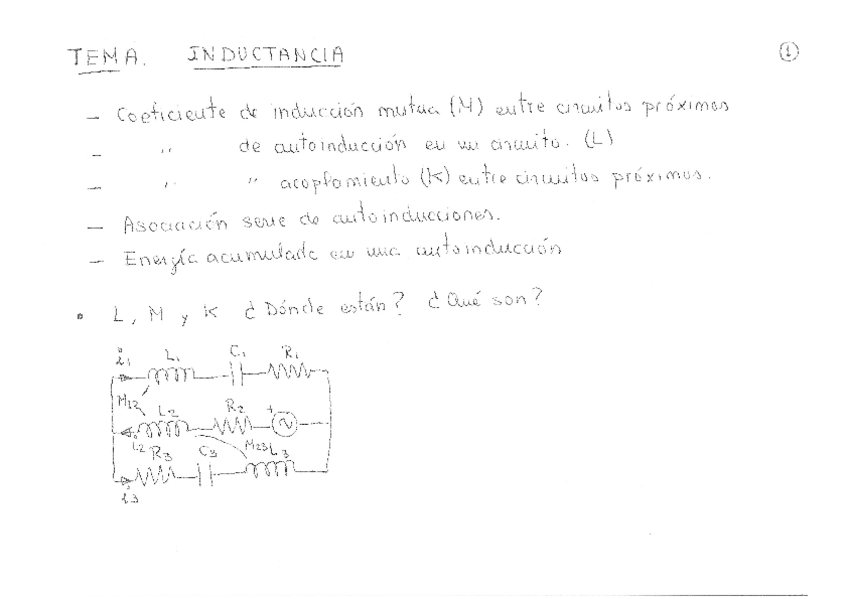 TEMA. INDUCTANCIA
1
— Coeficiente de inducción mutua (M) entre circuitos próximos
— " de autoinducción en un circuito. (L)
— " " acoplamiento (K) entre circuitos próximos.
— Asociación serie de autoinducciones.
— Energía acumulada en una autoinducción
• L, M y K ¿Dónde están? ¿Qué son?
i1 L1 C1 R1
M12
L2 R2 +
i2 R3 C3 M23 L3
i3